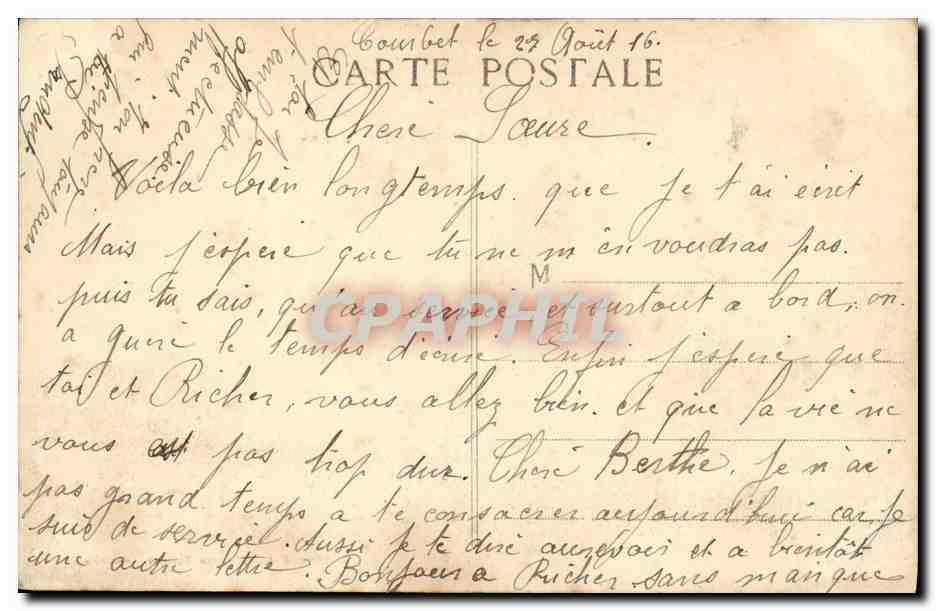 Courbet le 27 Août 16.
CARTE POSTALE
Cheré Sœure.
Voila bien longtemps. que je t'ai écrit
Mais j'esperé que tu ne m'en voudras pas.
M
puis tu sais, qu'au service et surtout a bord, on.
CPAPHIL
a gueré le temps d'écrire. Enfin j'esperé que
toi et Richer, vous allez bien. et que la vie ne
vous est pas trop dur. Cheré Berthe, Je n'ai
pas grand temps a te consacrer aujourd'hui car je
suis de servie. Aussi je te diré aurevoir et a bientôt
une autre lettre. Bonjour a Richer sans manque
Je t'embrasse
affectueuse
ment.
qui
Ton
a toi
pense toujours